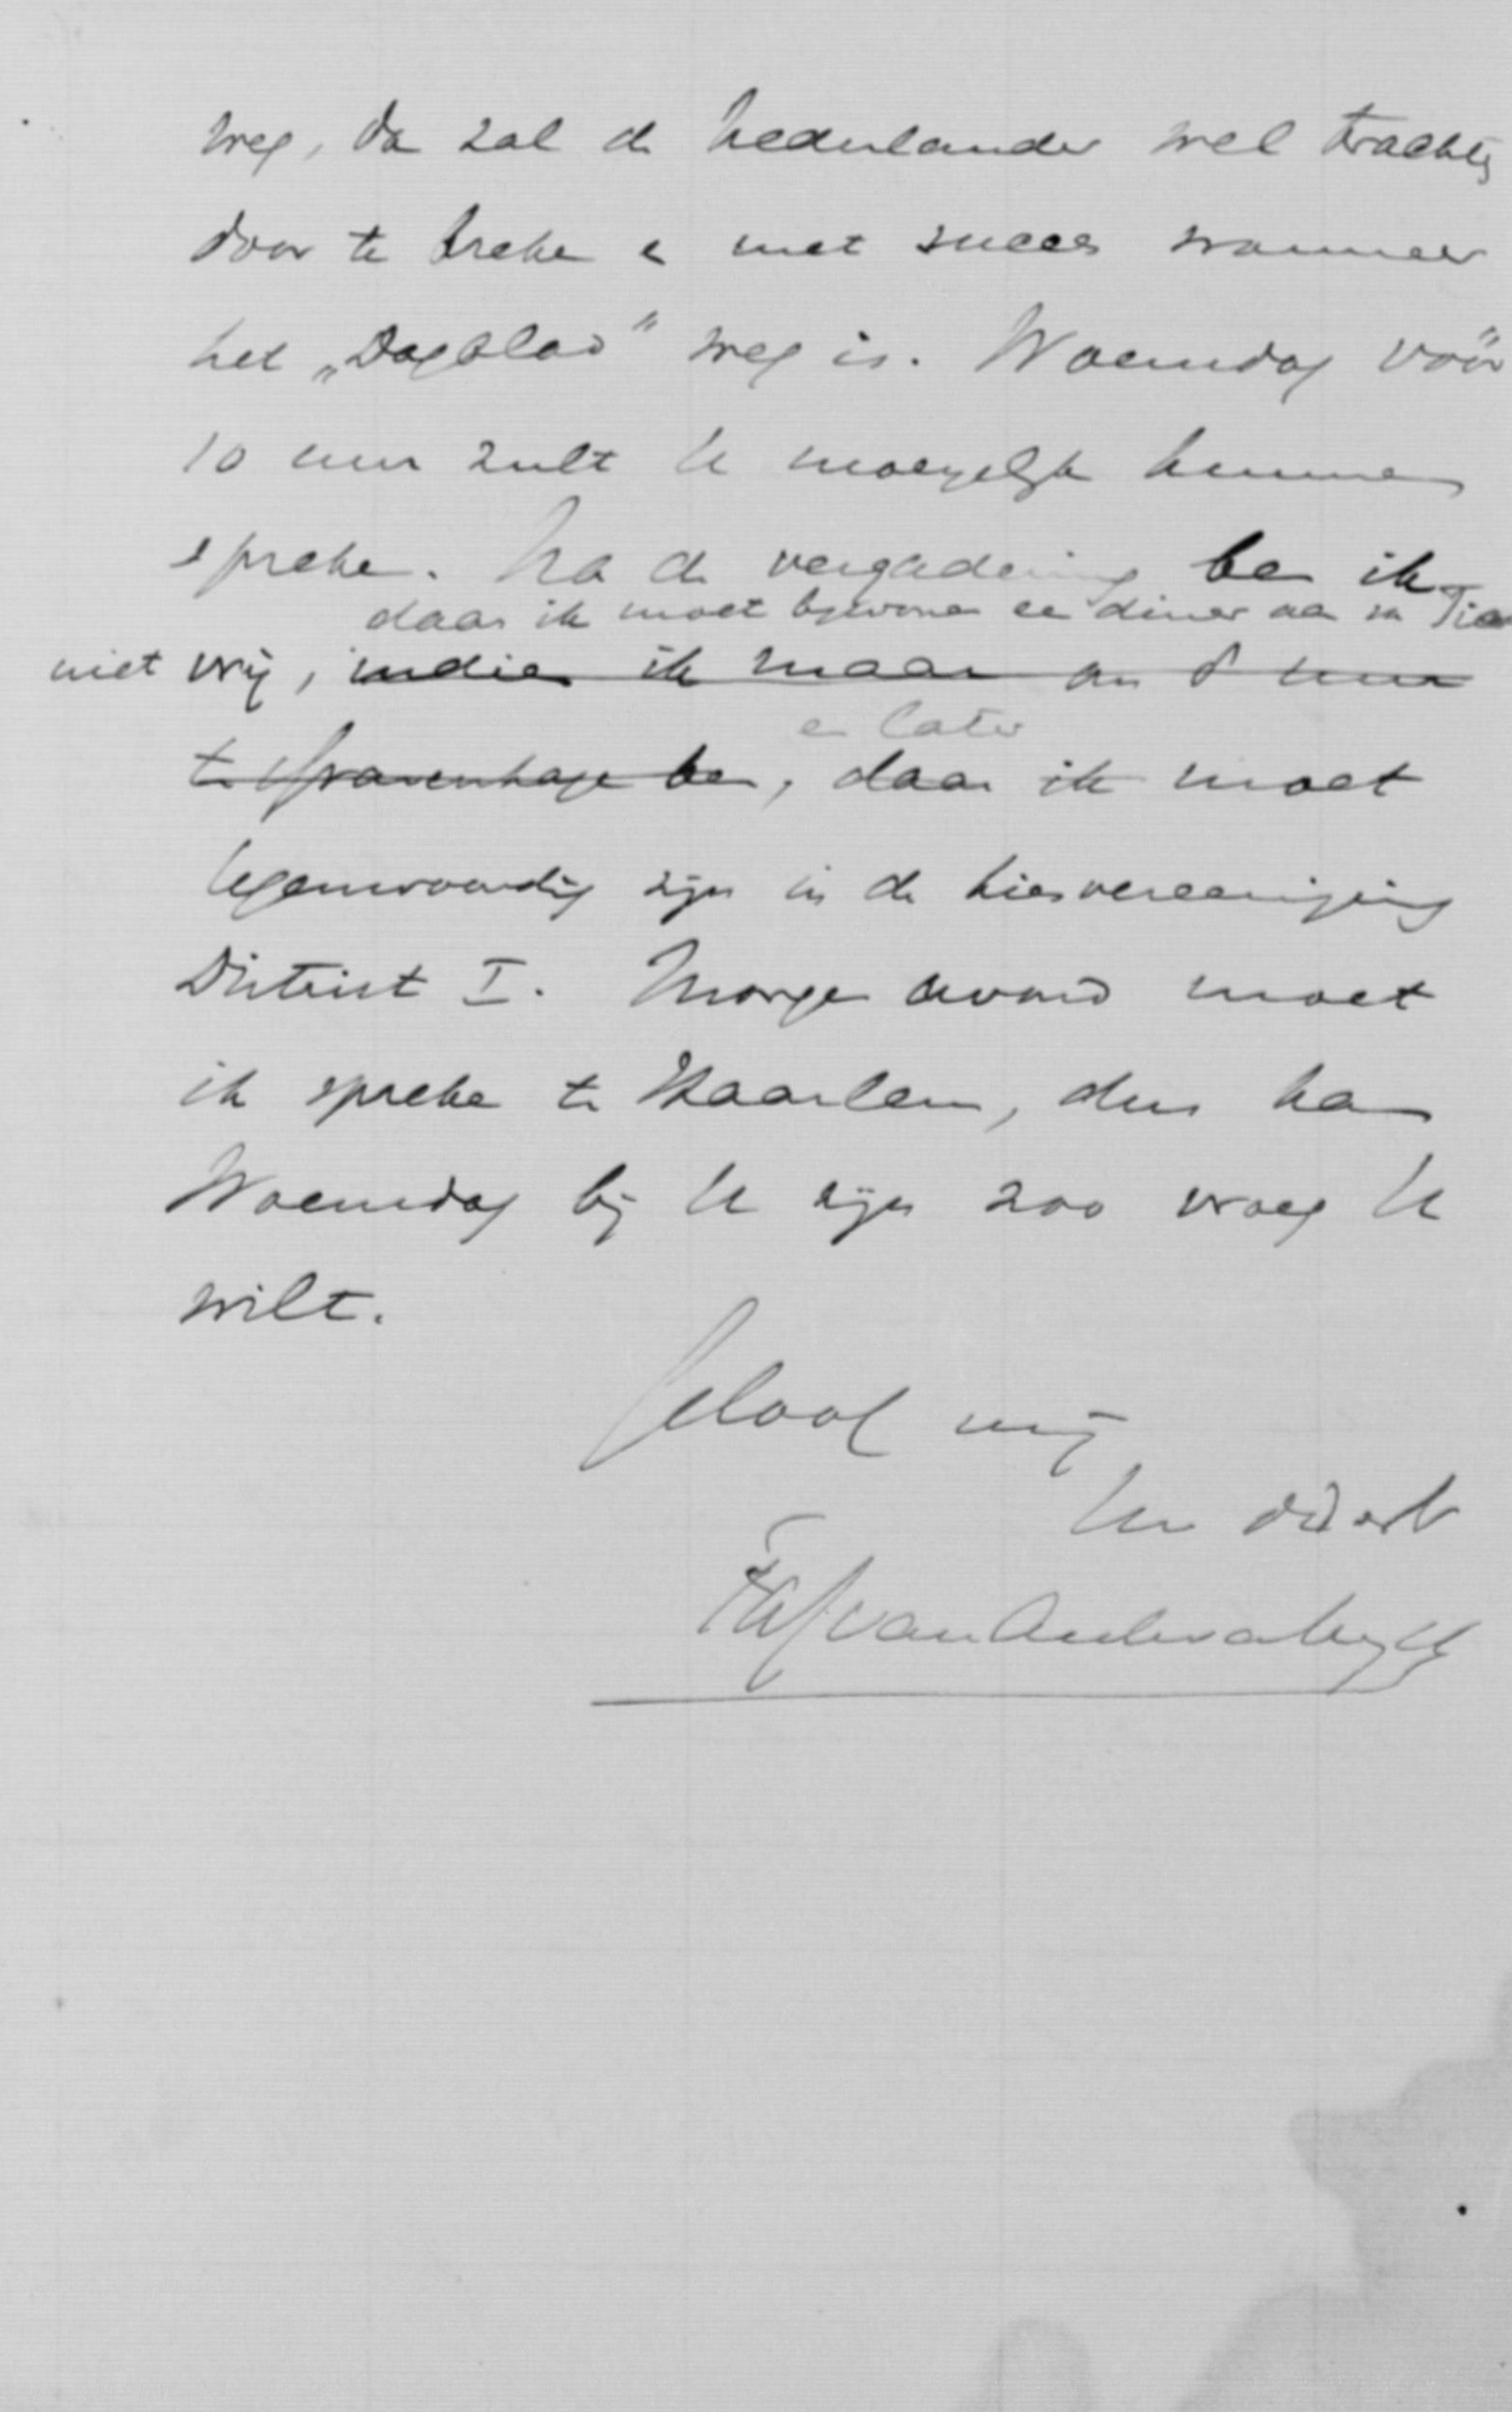 weg, dan zal de Nederlander wel trachten
door te breken en met succes wanneer
het „Dagblad" weg is. Woensdag vóór
10 uur zult U moeyelijk kunnen
spreken. Na de vergadering ben ik
daar ik moet bijwonen een diner aan
niet vrij, indien ik maar om 8 uur
en later
te 's Gravenhage ben, daar ik moet
tegenwoordig zijn in de kiesvereeniging
District I. Morgen avond moet
ik spreken te Haarlem, dus kan
Woensdag bij U zijn zoo vroeg U
wilt.
Geloof mij
Uw